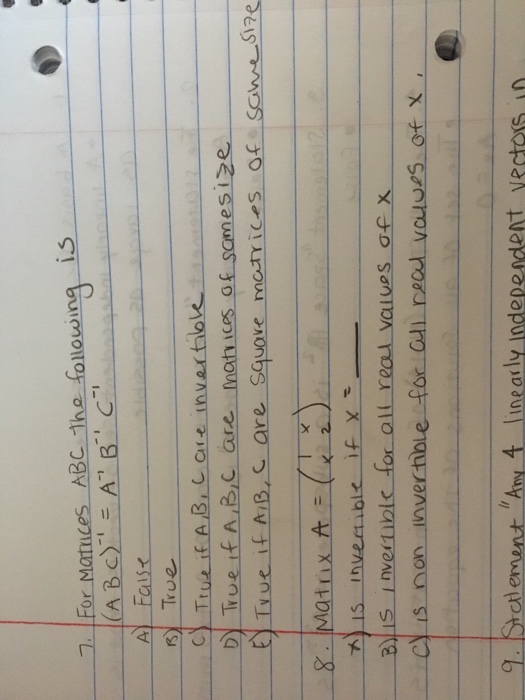 7. For Matrices ABC the following is
(ABC)⁻¹ = A⁻¹ B⁻¹ C⁻¹
A) False
B) True
C) True if A, B, C are invertible
D) True if A, B, C are matrices of same size
E) True if A, B, C are square matrices of same size
8. Matrix A = (1 x
x 2)
A) is invertible if x = ___
B) is invertible for all real values of x
C) is non invertible for all real values of x.
9. Statement "Any 4 linearly independent vectors in